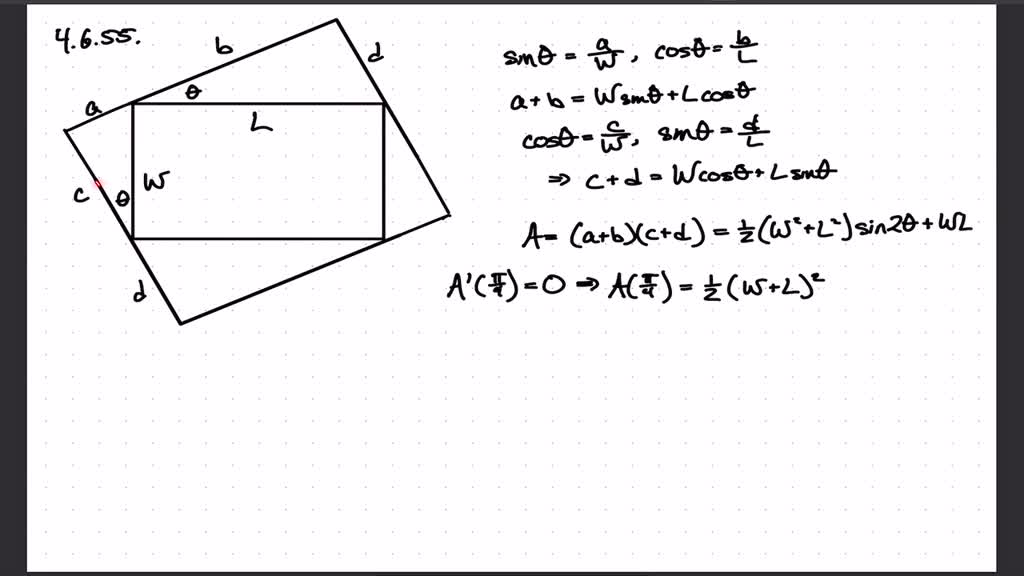 4.6.55.
b
d
a
θ
L
c
θ
W
d
sinθ = a/W, cosθ = b/L
a+b = Wsinθ+Lcosθ
cosθ = c/W, sinθ = d/L
⇒ c+d = Wcosθ+Lsinθ
A = (a+b)(c+d) = 1/2(W²+L²)sin2θ+WL
A'(π/4)=0 ⇒ A(π/4) = 1/2(W+L)²